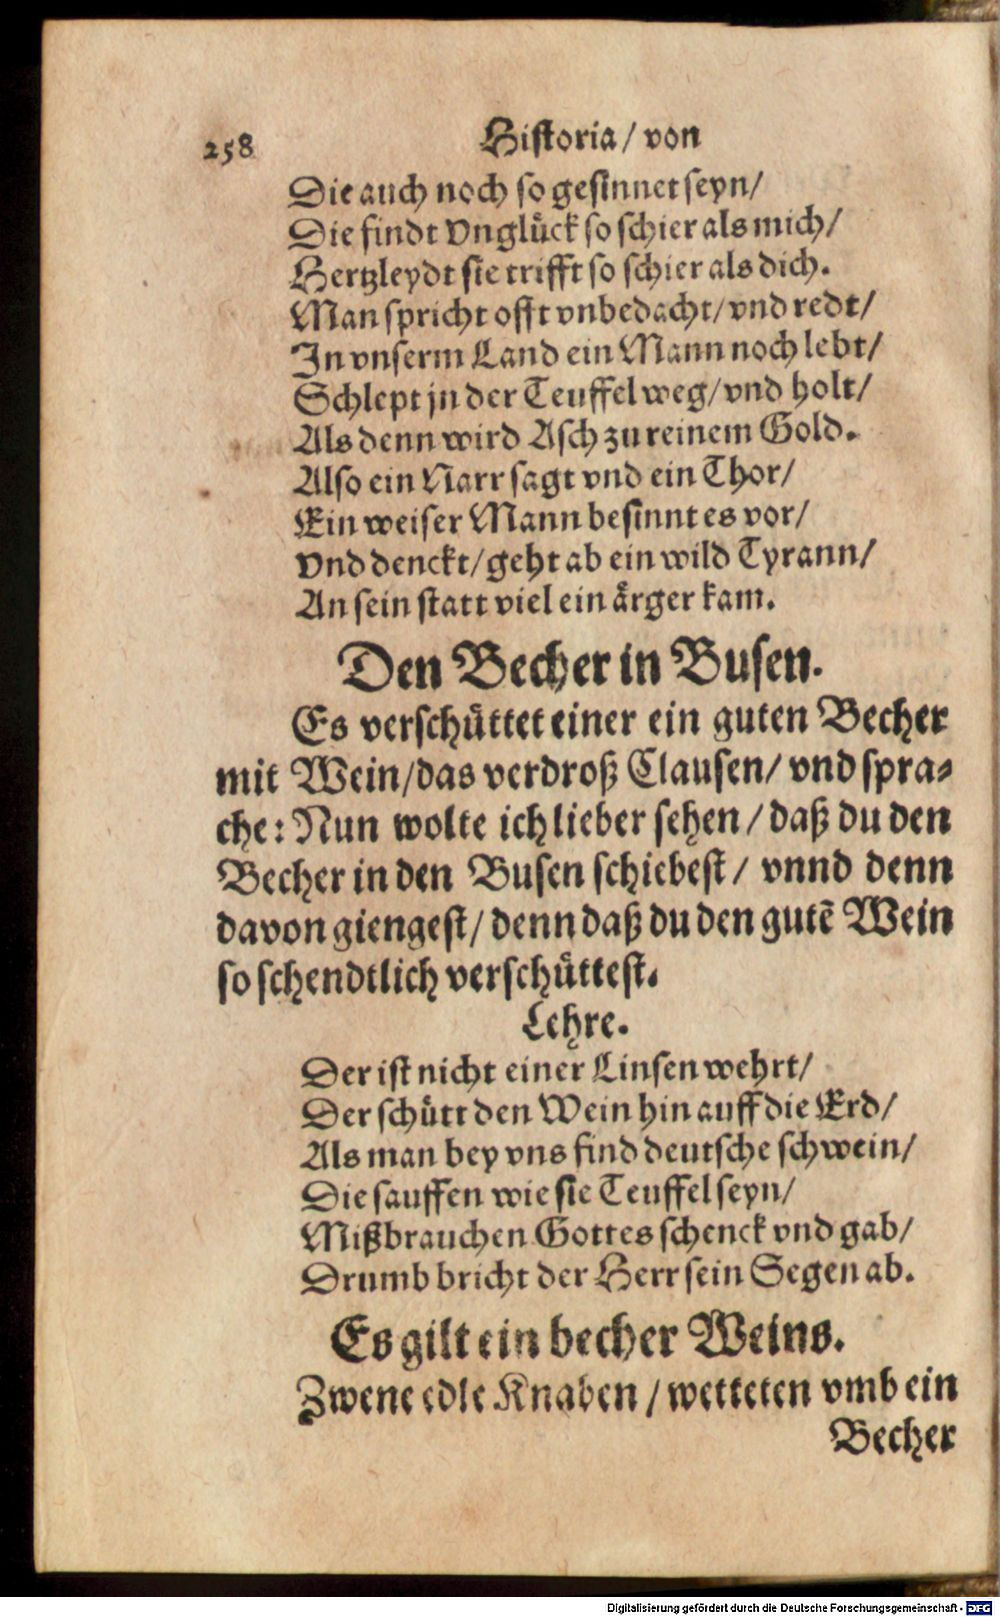 258 Historia/ von
Die auch noch so gesinnet seyn/
Die findt Vnglück so schier als mich/
Hertzleydt sie trifft so schier als dich.
Man spricht offt vnbedacht/ vnd redt/
In vnserm Land ein Mann noch lebt/
Schlept jn der Teuffel weg/ vnd holt/
Als denn wird Asch zu reinem Gold.
Also ein Narr sagt vnd ein Thor/
Ein weiser Mann besinnt es vor/
Vnd denckt/ geht ab ein wild Tyrann/
An sein statt viel ein ärger kam.
Den Becher in Busen.
Es verschüttet einer ein guten Becher
mit Wein/ das verdroß Clausen/ vnd spra-
che: Nun wolte ich lieber sehen/ daß du den
Becher in den Busen schiebest/ vnnd denn
davon giengest/ denn daß du den gutē Wein
so schendtlich verschüttest.
Lehre.
Der ist nicht einer Linsen wehrt/
Der schütt den Wein hin auff die Erd/
Als man bey vns find deutsche schwein/
Die sauffen wie sie Teuffel seyn/
Mißbrauchen Gottes schenck vnd gab/
Drumb bricht der Herr sein Segen ab.
Es gilt ein becher Weins.
Zwene edle Knaben/ wetteten vmb ein
Becher
Digitalisierung gefördert durch die Deutsche Forschungsgemeinschaft - DFG